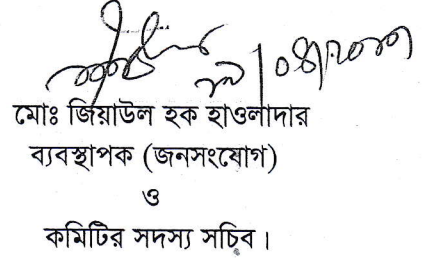 মোঃ জিয়াউল হক হাওলাদার
ব্যবস্থাপক (জনসংযোগ)
ও
কমিটির সদস্য সচিব।